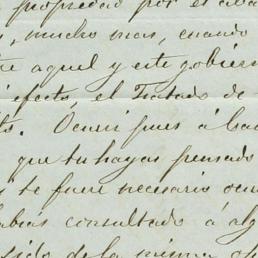 propiedad por el
, mucho mas, cuando
aquel y este gobier
efecto, el Tratado de
Ocurri pues á
que tu hayas pensado
y te fuere necesario ocu
consultado á alg
de la misma